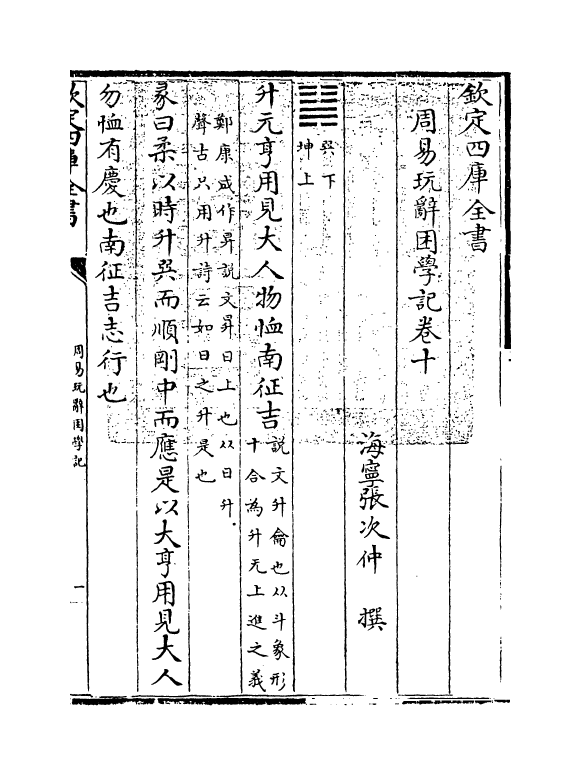 欽定四庫全書
周易玩辭困學記卷十
海寧張次仲　撰
䷭
巽下
坤上
升元亨用見大人物恤南征吉
說文升龠也从斗象形
十合為升无上進之義
鄭康成作昇說文昇日上也从日升
聲古只用升詩云如日之升是也
彖曰柔以時升巽而順剛中而應是以大亨用見大人
勿恤有慶也南征吉志行也
欽定四庫全書
周易玩辭困學記
一